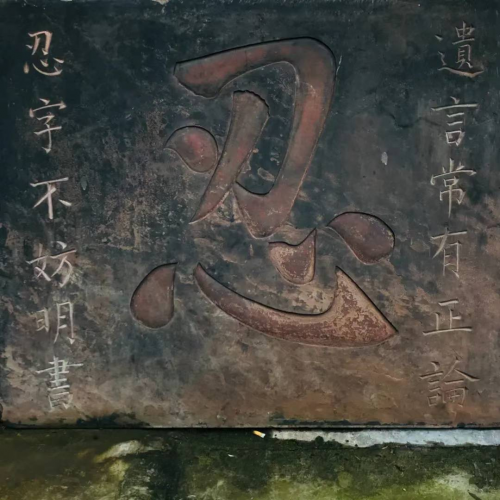 遺言常有正論
忍
忍字不妨明書